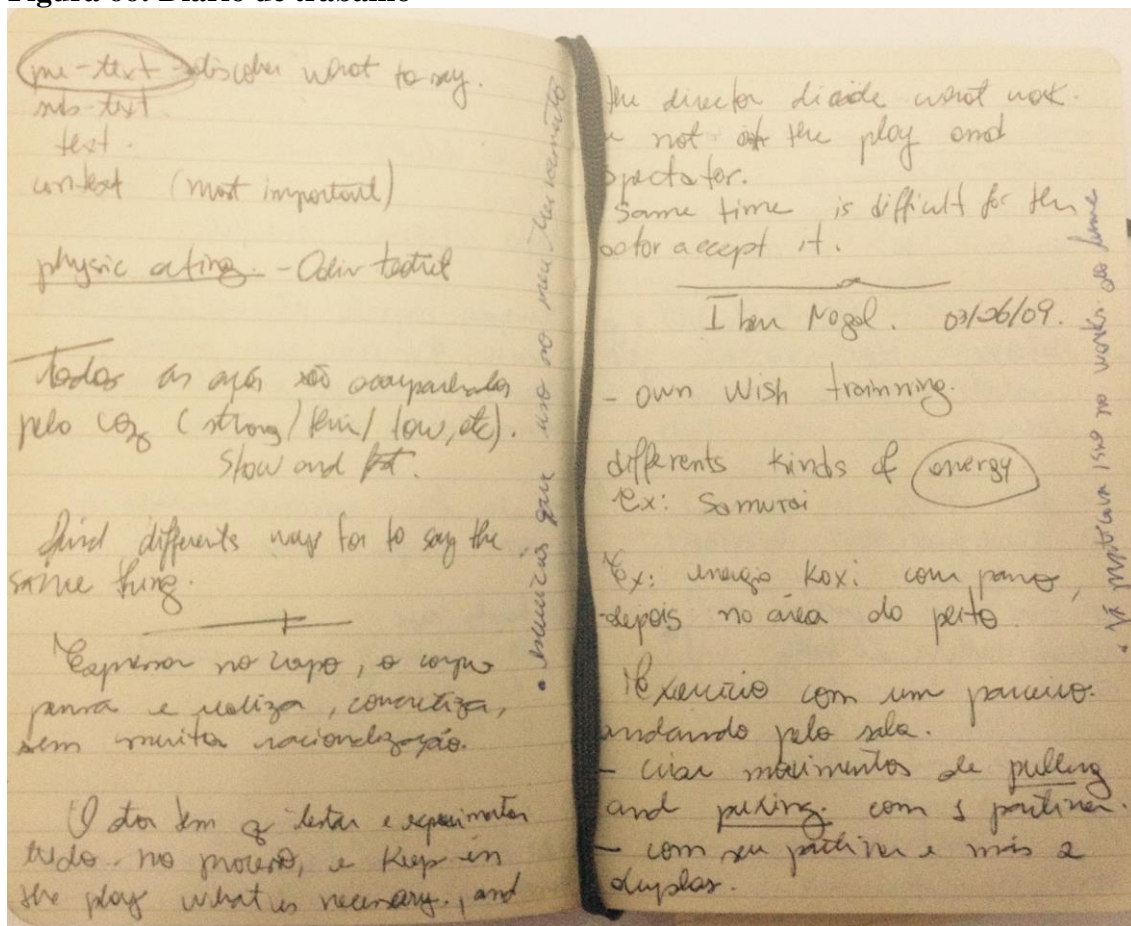 Figura 60: Diário de trabalho
pre-text - discover what to say.
sub-text.
text.
context (most important)
physic acting. - Odin teatret
Todas as ações são acompanhadas
pelo voz (strong / / low, etc).
Slow and fast.
find differents ways for to say the
same thing.
Expressar no corpo, o corpo
pensa e realiza, concretiza,
sem muita racionalização.
O ator tem q testar e experimentar
tudo no processo, e keep in
the play what is necessary, and
• exercícios que uso no meu treinamento
the director dicide what work
not the play and
spectator.
Same time is difficult for the
actor accept it.
Iben Nagel. 03/26/09.
- own wish trainning.
differents kinds of energy
Ex: Samurai
Ex: energia Koxi com pano,
depois na área do peito
Exercício com um parceiro.
andando pela sala.
- criar movimentos de pulling
and puxing. com 1 partiner.
- com seu partiner e mais 2
duplas.
• Já praticava isso no works do Lume